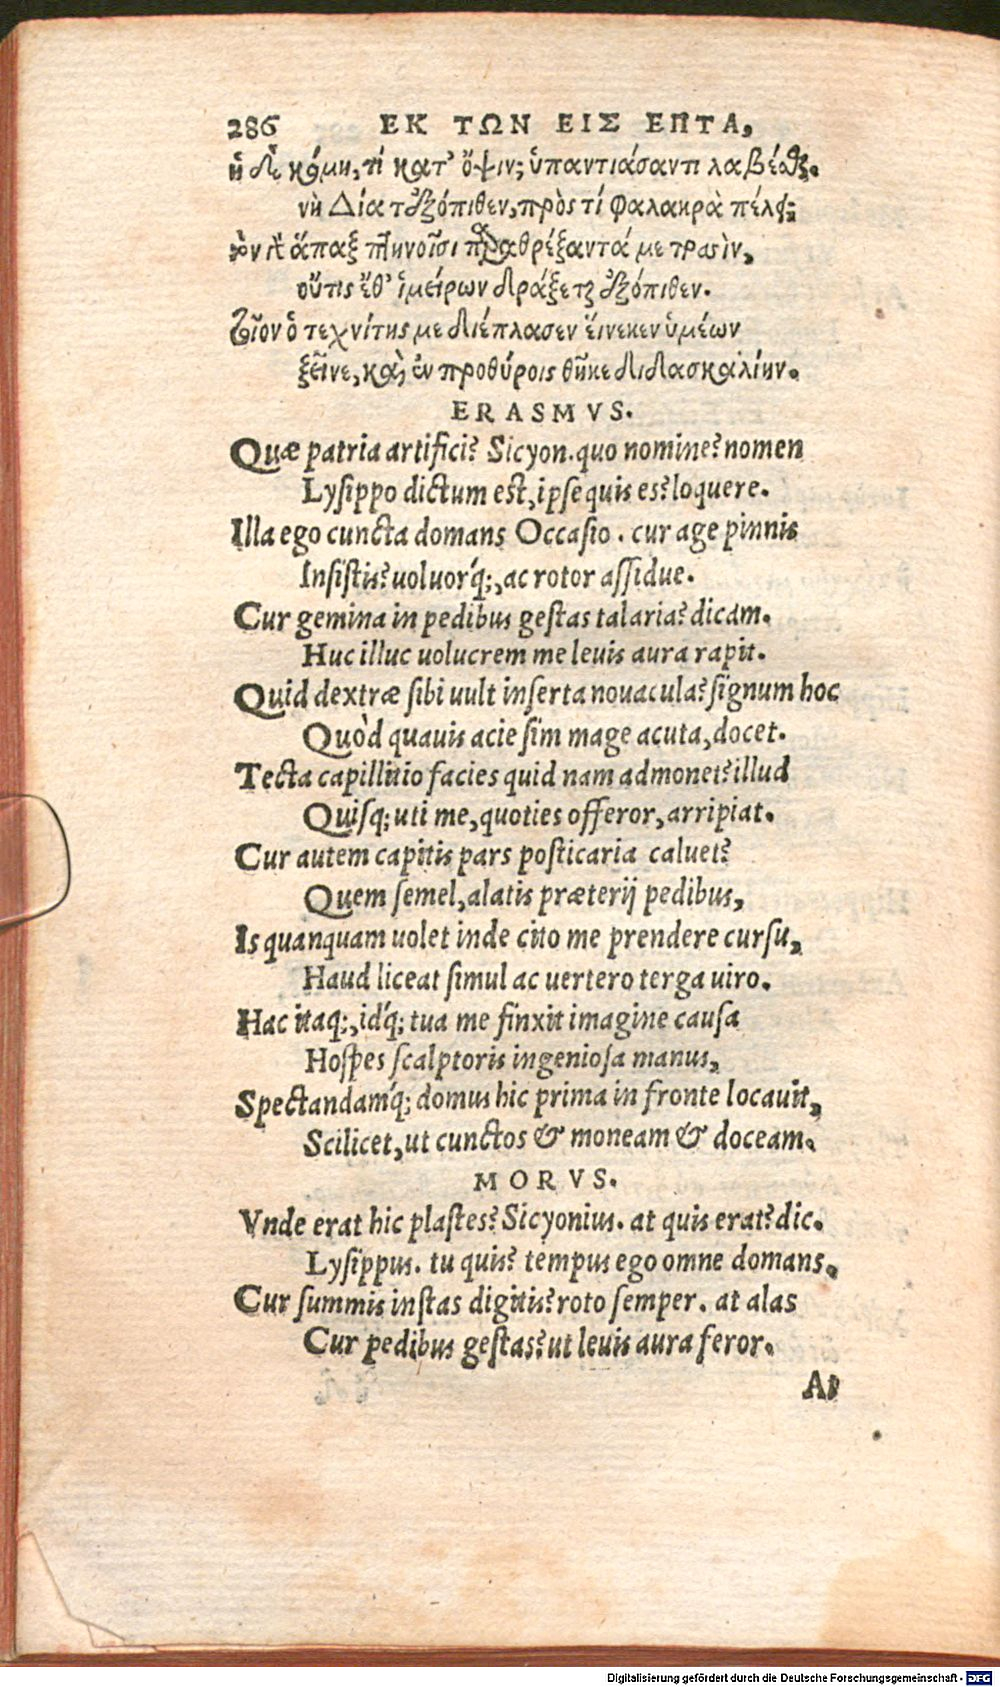 286 ΕΚ ΤΩΝ ΕΙΣ ΕΠΤΑ,
ἡ δὲ κόμη, τί κατ' ὄψιν; ὑπαντιάσαντι λαβέσθαι.
νὴ Δία τἀξόπιθεν, πρὸς τί φαλακρὰ πέλει;
τὸν γὰρ ἅπαξ πτηνοῖσι παραθρέξαντά με ποσσὶν,
οὔτις ἔθ' ἱμείρων δράξεται ἐξόπιθεν.
τοῖον ὁ τεχνίτης με διέπλασεν εἵνεκεν ὑμέων
ξεῖνε, καὶ ἐν προθύροις θῆκε διδασκαλίην.
ERASMVS.
Quæ patria artifici? Sicyon. quo nomine? nomen
Lysippo dictum est, ipse quis es? loquere.
Illa ego cuncta domans Occasio. cur age pinnis
Insistis? uoluorq́;, ac rotor assidue.
Cur gemina in pedibus gestas talaria? dicam.
Huc illuc uolucrem me leuis aura rapit.
Quid dextræ sibi uult inserta nouacula? signum hoc
Quòd quauis acie sim mage acuta, docet.
Tecta capillitio facies quid nam admonet? illud
Quisq; uti me, quoties offeror, arripiat.
Cur autem capitis pars posticaria caluet?
Quem semel, alatis præterij pedibus,
Is quanquam uolet inde cito me prendere cursu,
Haud liceat simul ac uertero terga uiro.
Hac itaq;, idq́; tua me finxit imagine causa
Hospes scalptoris ingeniosa manus,
Spectandamq́; domus hic prima in fronte locauit,
Scilicet, ut cunctos & moneam & doceam.
MORVS.
Vnde erat hic plastes? Sicyonius. at quis erat? dic.
Lysippus. tu quis? tempus ego omne domans.
Cur summis instas digitis? roto semper. at alas
Cur pedibus gestas? ut leuis aura feror.
At
Digitalisierung gefördert durch die Deutsche Forschungsgemeinschaft - DFG